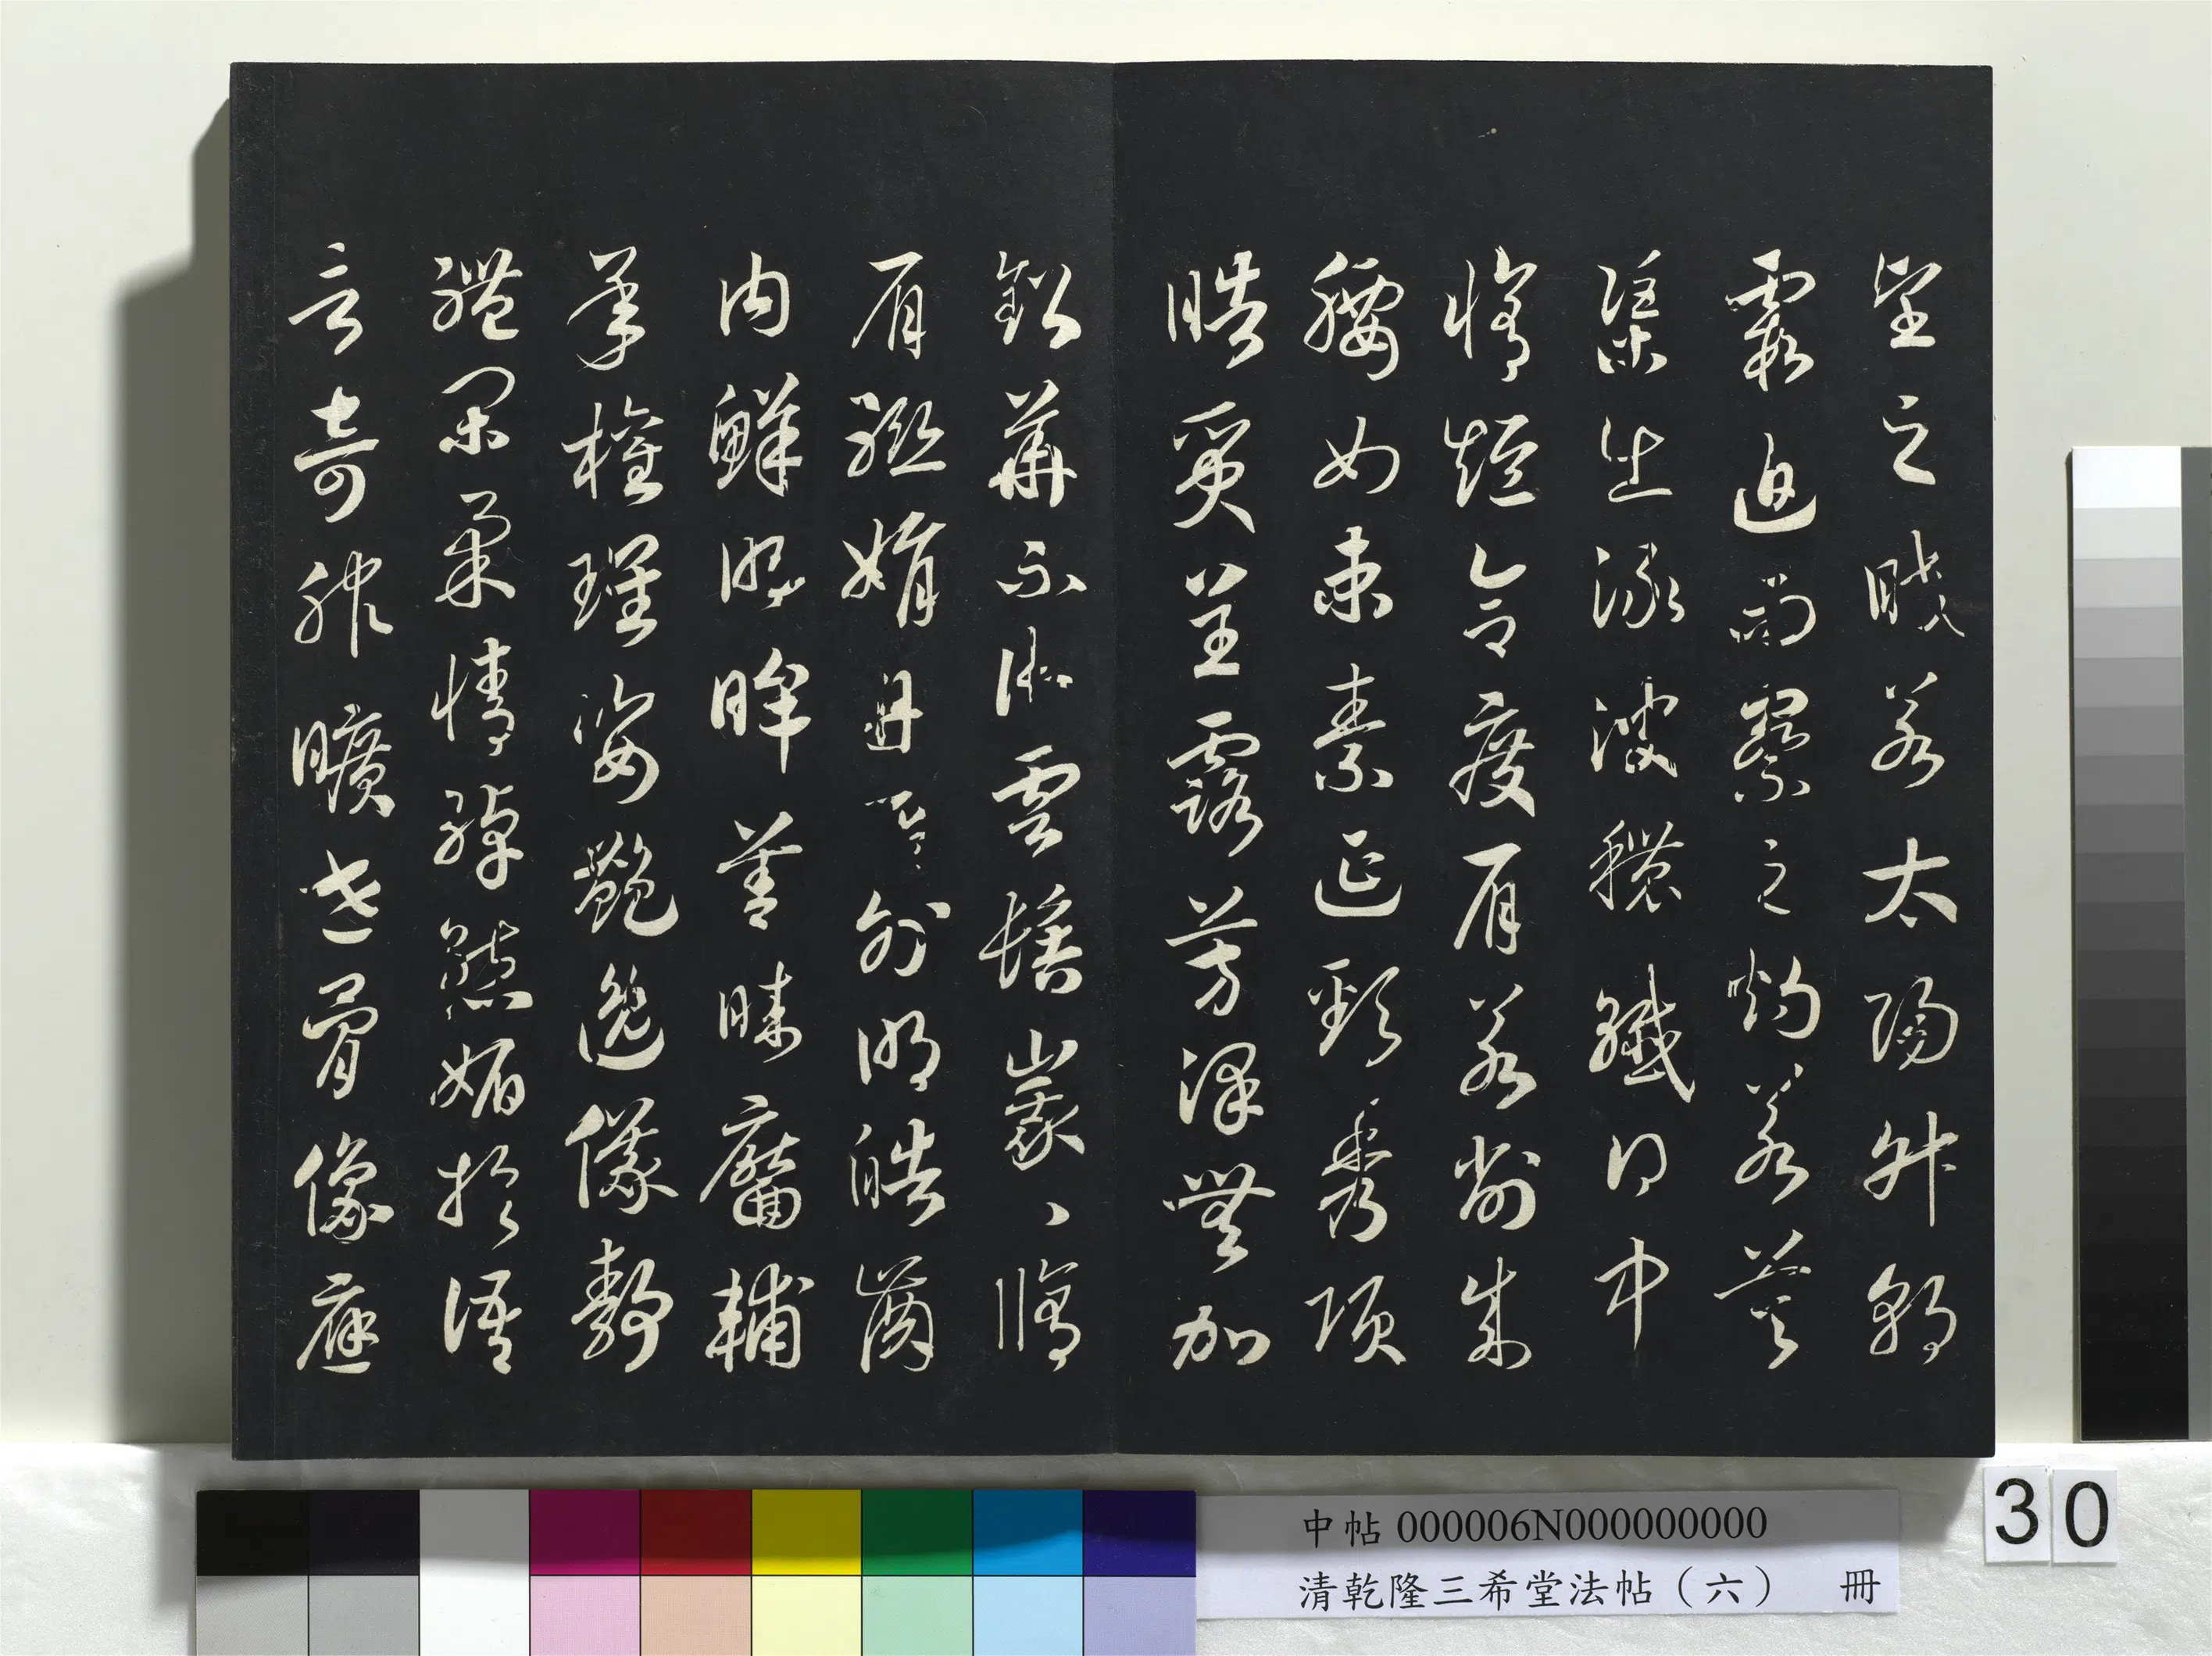 望之晈若太陽升朝
霞迫而察之灼若芙
蕖出淥波穠纖得中
脩短合度肩若削成
腰如束素延頸秀項
皓質呈露芳澤無加
鉛華不御雲髻峩〻脩
眉聯娟丹脣外朗皓齒
內鮮明眸善睞靨輔
承權瓌姿艷逸儀靜
體閑柔情綽態媚於語
言奇服曠世骨像應
中帖 000006N000000000
清乾隆三希堂法帖（六） 冊
30